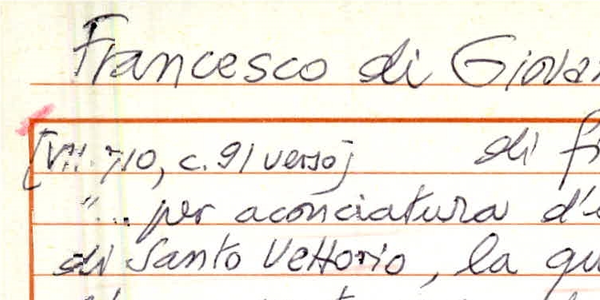 Francesco di Giovan
[VII. 710, c. 91 verso] di fr
"... per aconciatura d'
di Santo Vettorio, la qu